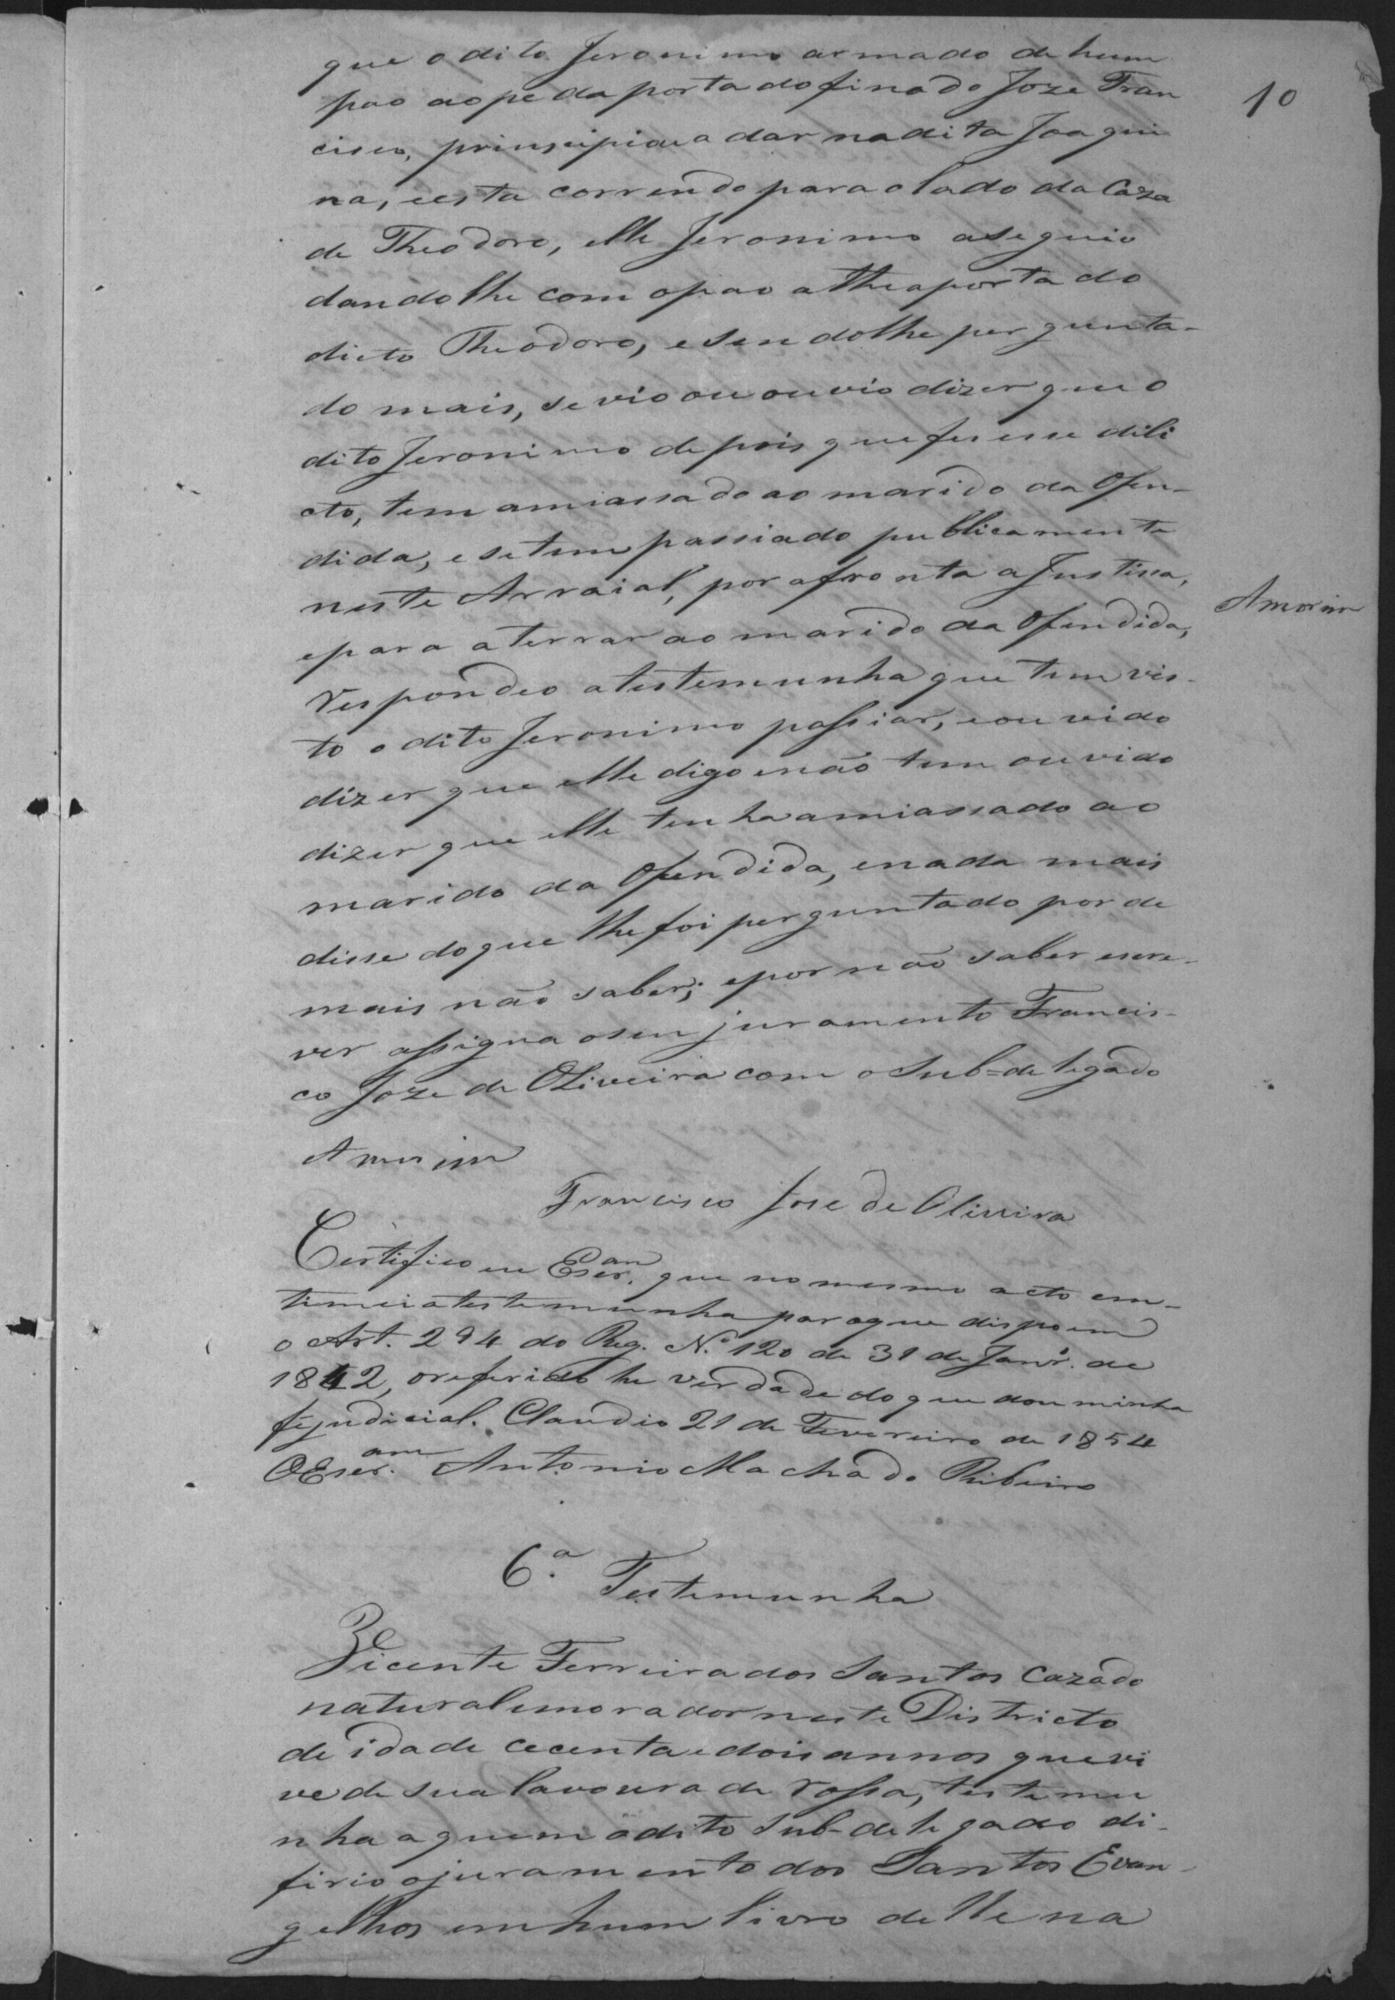 10
que o dito Jeronimo armado de hum
pao ao pe da porta do finado Joze Fran
cisco, prinsipiou a dar na dita Joaqui
na, e esta correndo para o lado da Caza
de Theodoro, elle Jeronimo aseguio
dandolhe com o pao athe a porta do
dicto Theodoro, e sendolhe pergunta-
do mais, se vio ou ouvio dizer que o
dito Jeronimo depois que fes esse dili
cto, tem amiassado ao marido da Ofen-
dida, e se tem passiado publicamente
neste Arraial, por afronta a Justissa,
e para aterrar ao marido da Ofendida,
Amorim
respondeo a testemunha que tem vis-
to o dito Jeronimo passiar, e ouvido
dizer que elle digo e não tem ouvido
dizer que elle tenha amiassado ao
marido da Ofendida, e nada mais
disse do que lhe foi perguntado por de
mais não saber; e por não saber escre-
ver assigna o seu juramento Francis-
co Joze de Oliveira com o Sub=delegado
Amorim
Francisco Jose de Oliveira
Certifico eu Escr.am que no mesmo acto em-
timei a testemunha para o que dispoem
o Art. 294 do Reg. N.º 120 de 31 de Janr.º de
1842, o referido he verdade do que dou minha
fé judicial. Claudio 21 de Fevereiro de 1854
O Escr.am Antonio Machado Ribeiro
6.ª Testemunha
Vicente Ferreira dos Santos Cazado
natural e morador neste Districto
de idade cecenta e dois annos que vi
ve de sua lavoura de rossa, testemu
nha a quem o dito Sub-delegado di-
firio o juramento dos Santos Evan-
gelhos em hum livro delle na